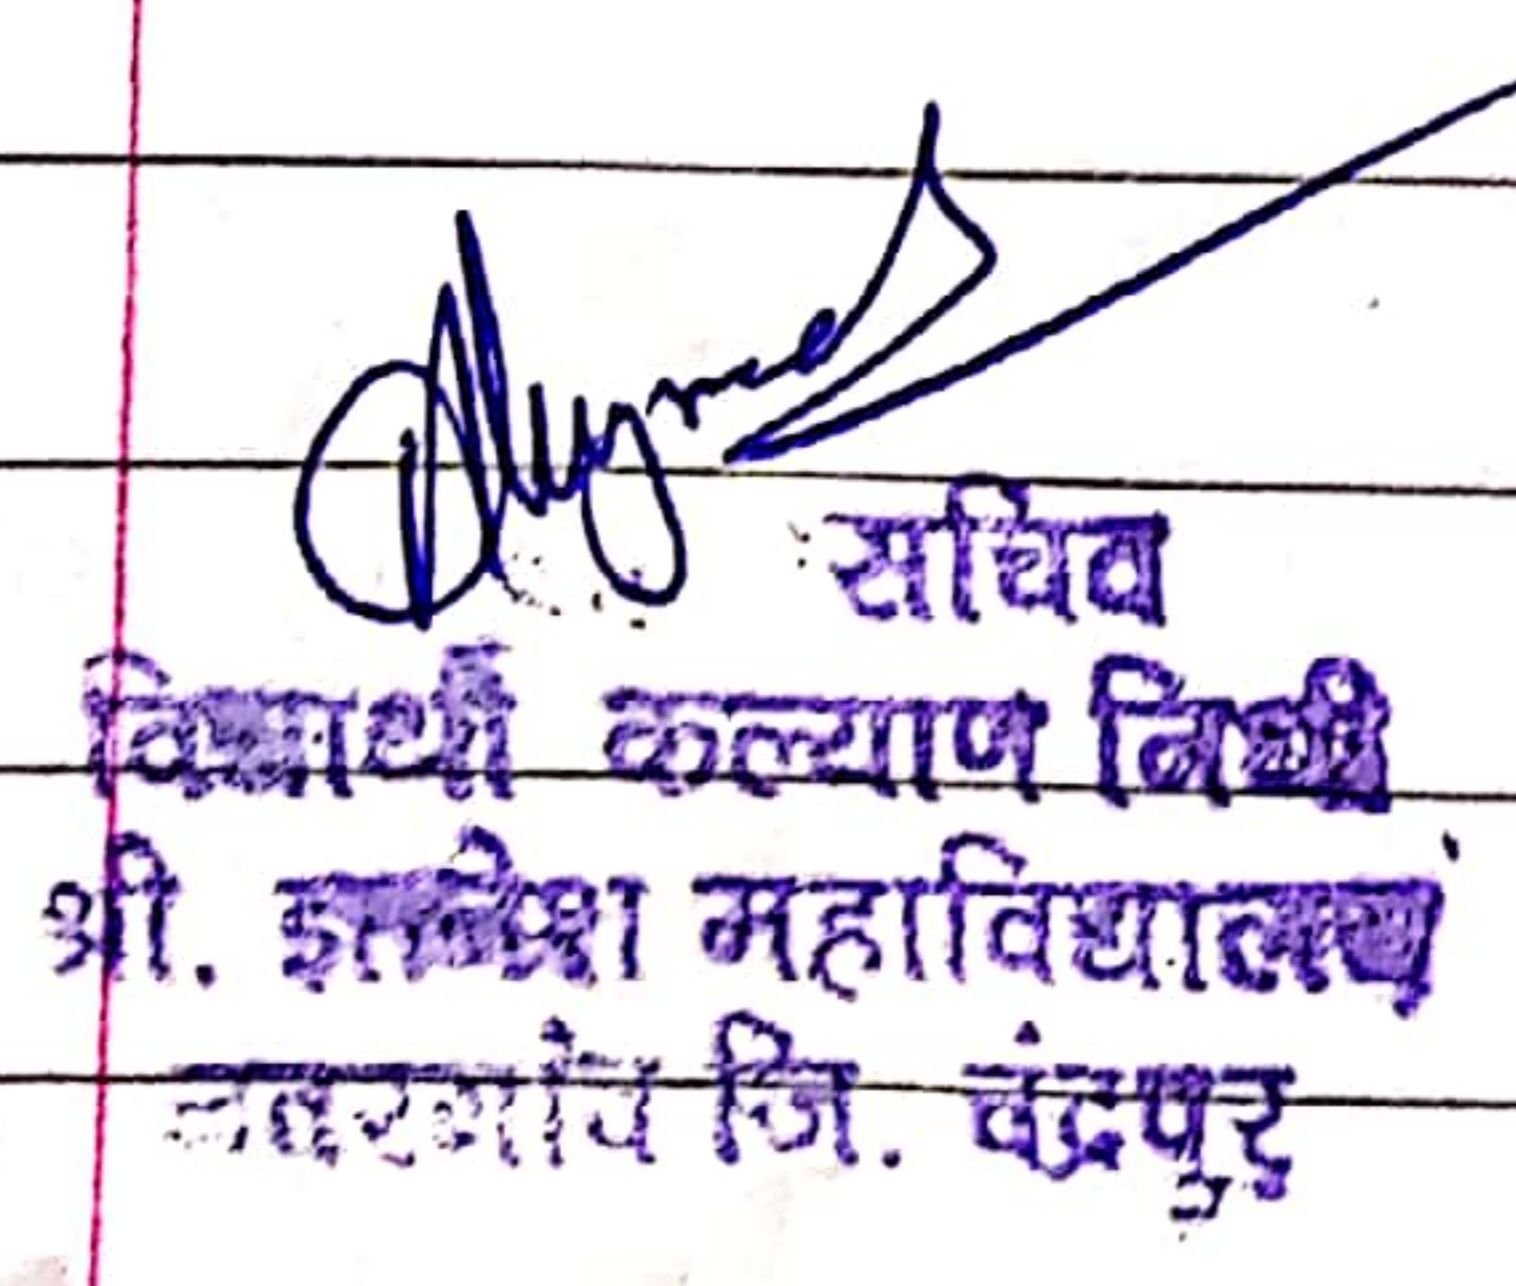 सचिव
विद्यार्थी कल्याण निधी
श्री. ज्ञानेश महाविद्यालय
नवरगांव जि. चंद्रपुर